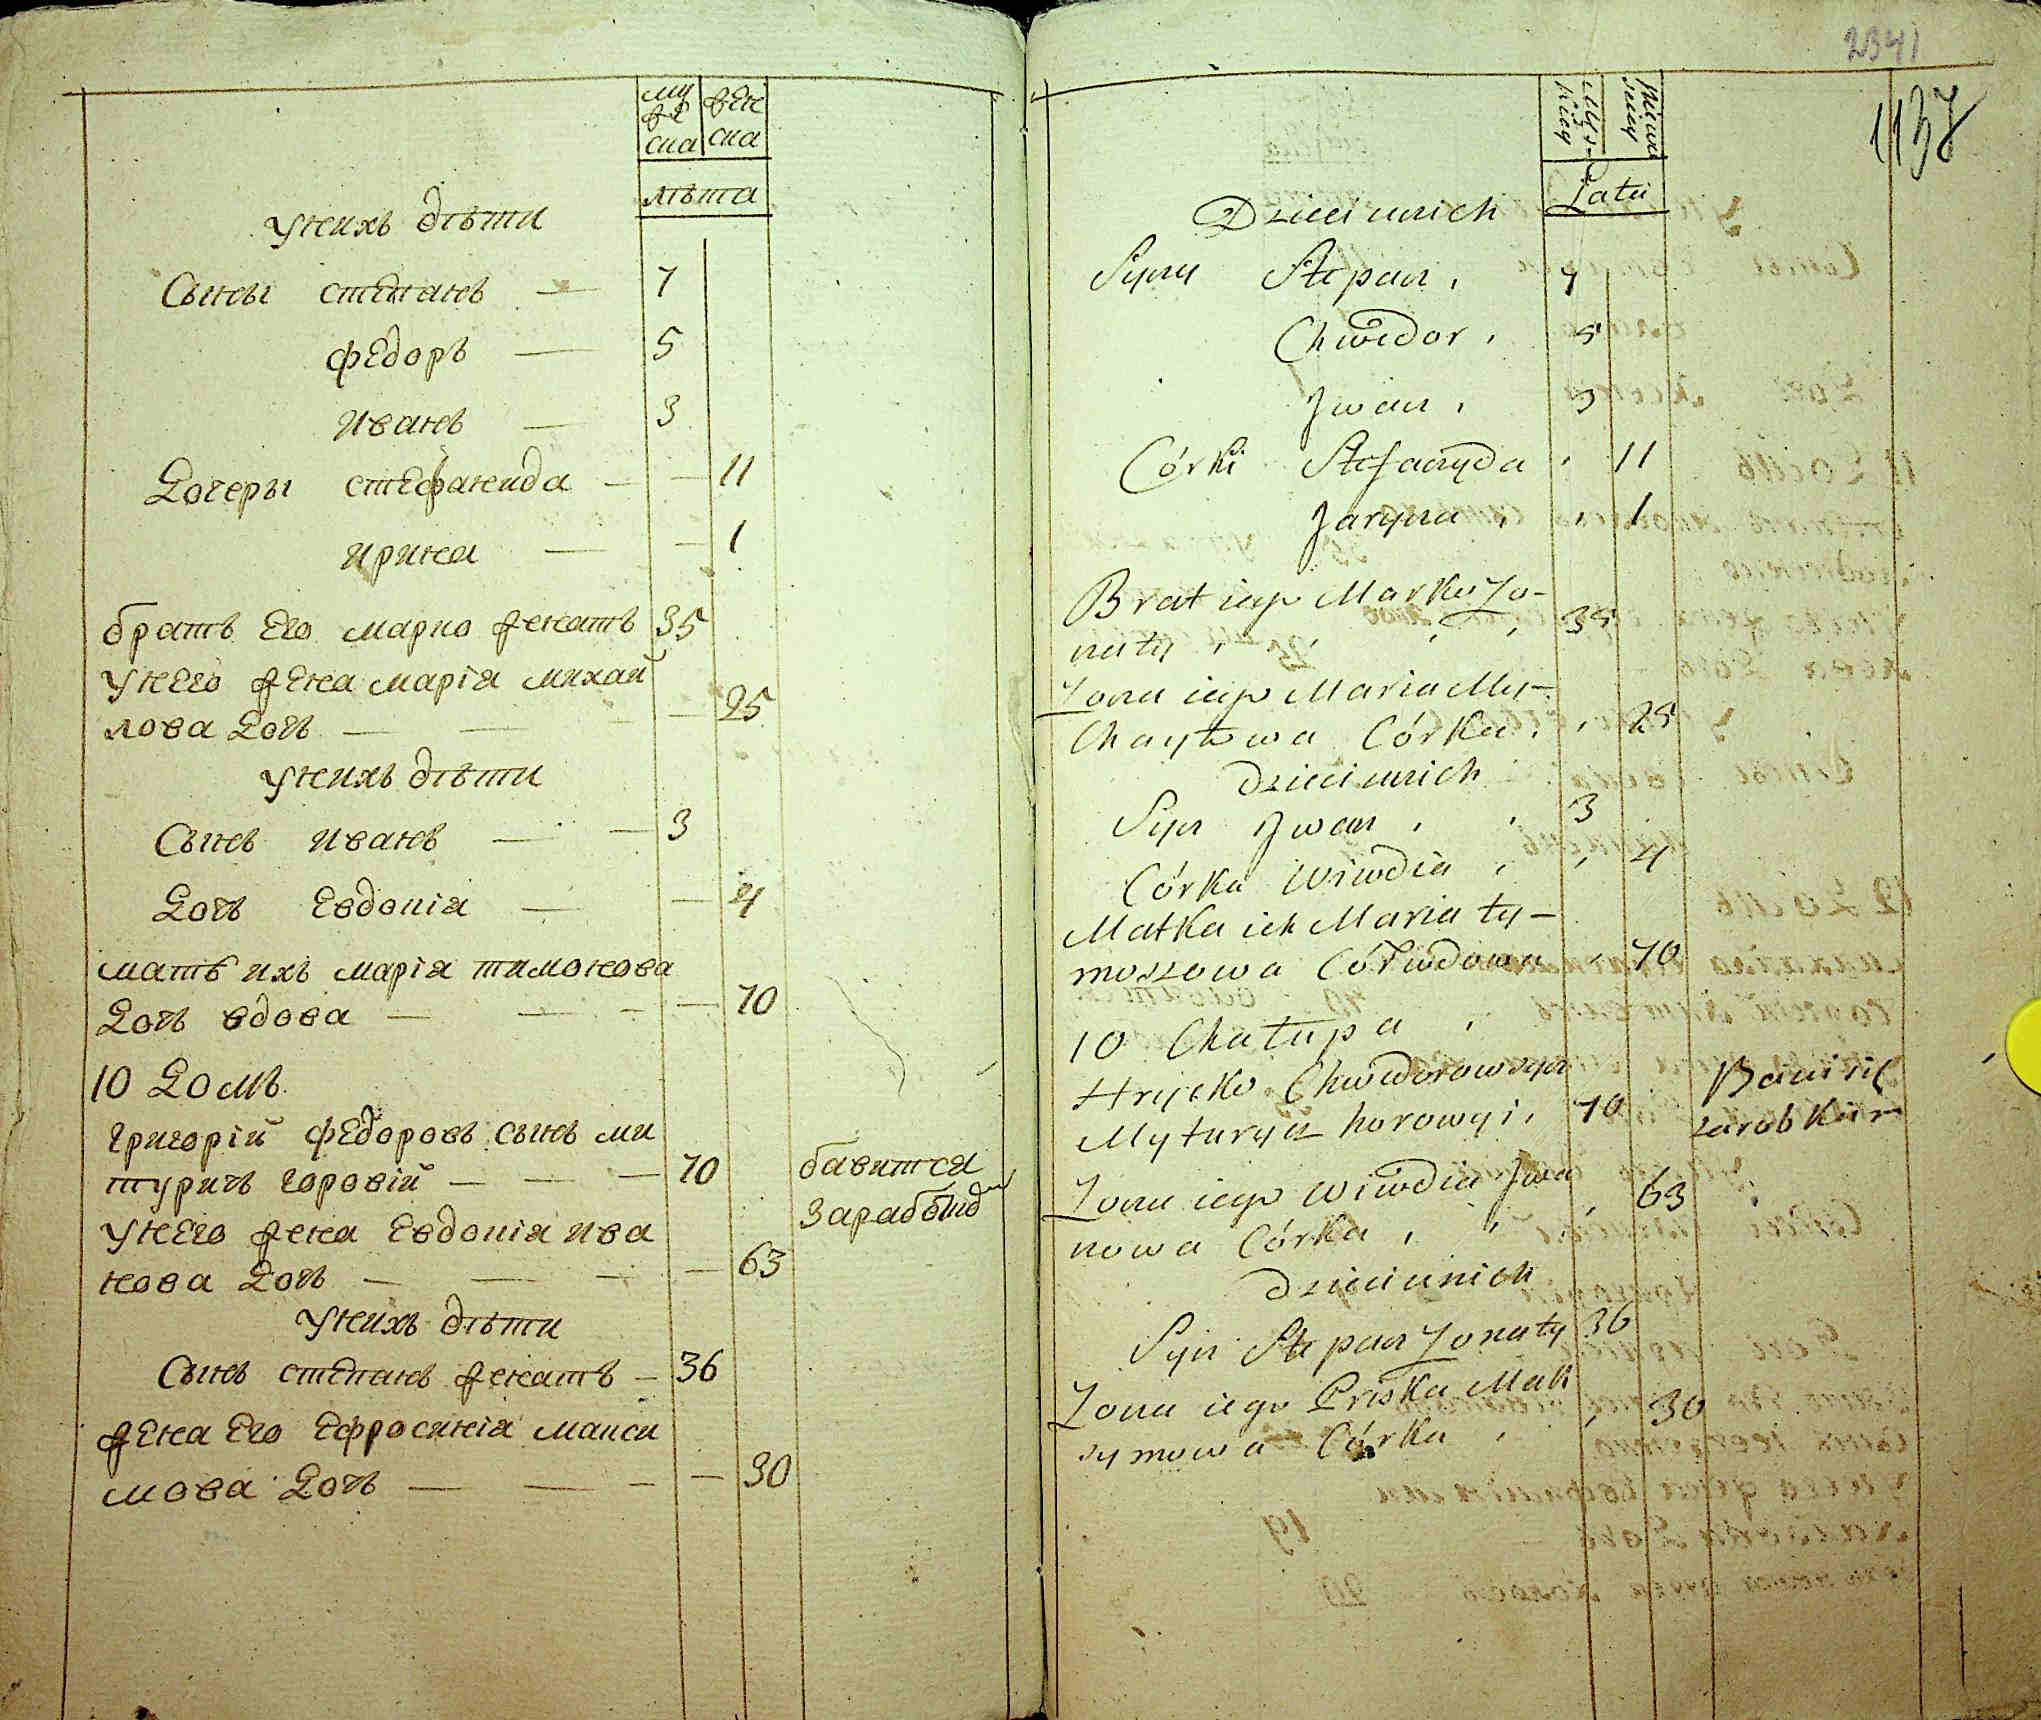 му
же
ска
жен
ска
лѣта
у нихъ дѣти
Сыны степанъ — 7
федоръ — 5
иванъ — 3
дочеры стефанида — — 11
ирина — — 1
братъ его марко женатъ 35
у него жена марія михай
лова дочь — — — 25
у нихъ дѣти
Сынъ иванъ — — 3
дочь Евдокія — — 4
мать ихъ марія тимохова
дочь вдова — — — 70
10 домъ
григорій федоровъ сынъ ми
туричь горовій — — — 70
бавится
зараб
у него жена Евдокія ива
нова дочь — — — — 63
у нихъ дѣти
Сынъ степанъ женатъ — 36
жена его Ефросинія макси
мова дочь — — — — 30
2341
1137
Latu
Dzieci unich
Syny Stepan, 7
Chwedor, 5
Jwan, 3
Córki Stefanyda , 11
Jaryna , , 1
Brat iego Marko Żo-
naty , , , , 35
Żona iego Maria My-
chayłowa Córka, , 25
dzieci unich
Syn Jwan , , 3
Córka Wiwdia , , 4
Matka ich Maria ty-
moszowa Cór: wdowa , 70
10 Chałupa ,
Hrycko Chwedorow syn
Myturycz horowyi, 70
Bawi się
zarobkiem
Żona iego Wiwdia Jwa
nowa Córka , , , 63
dzieci unich
Syn Stepan Żonaty 36
Żona iego Priska Mak
symowa Córka , , 30